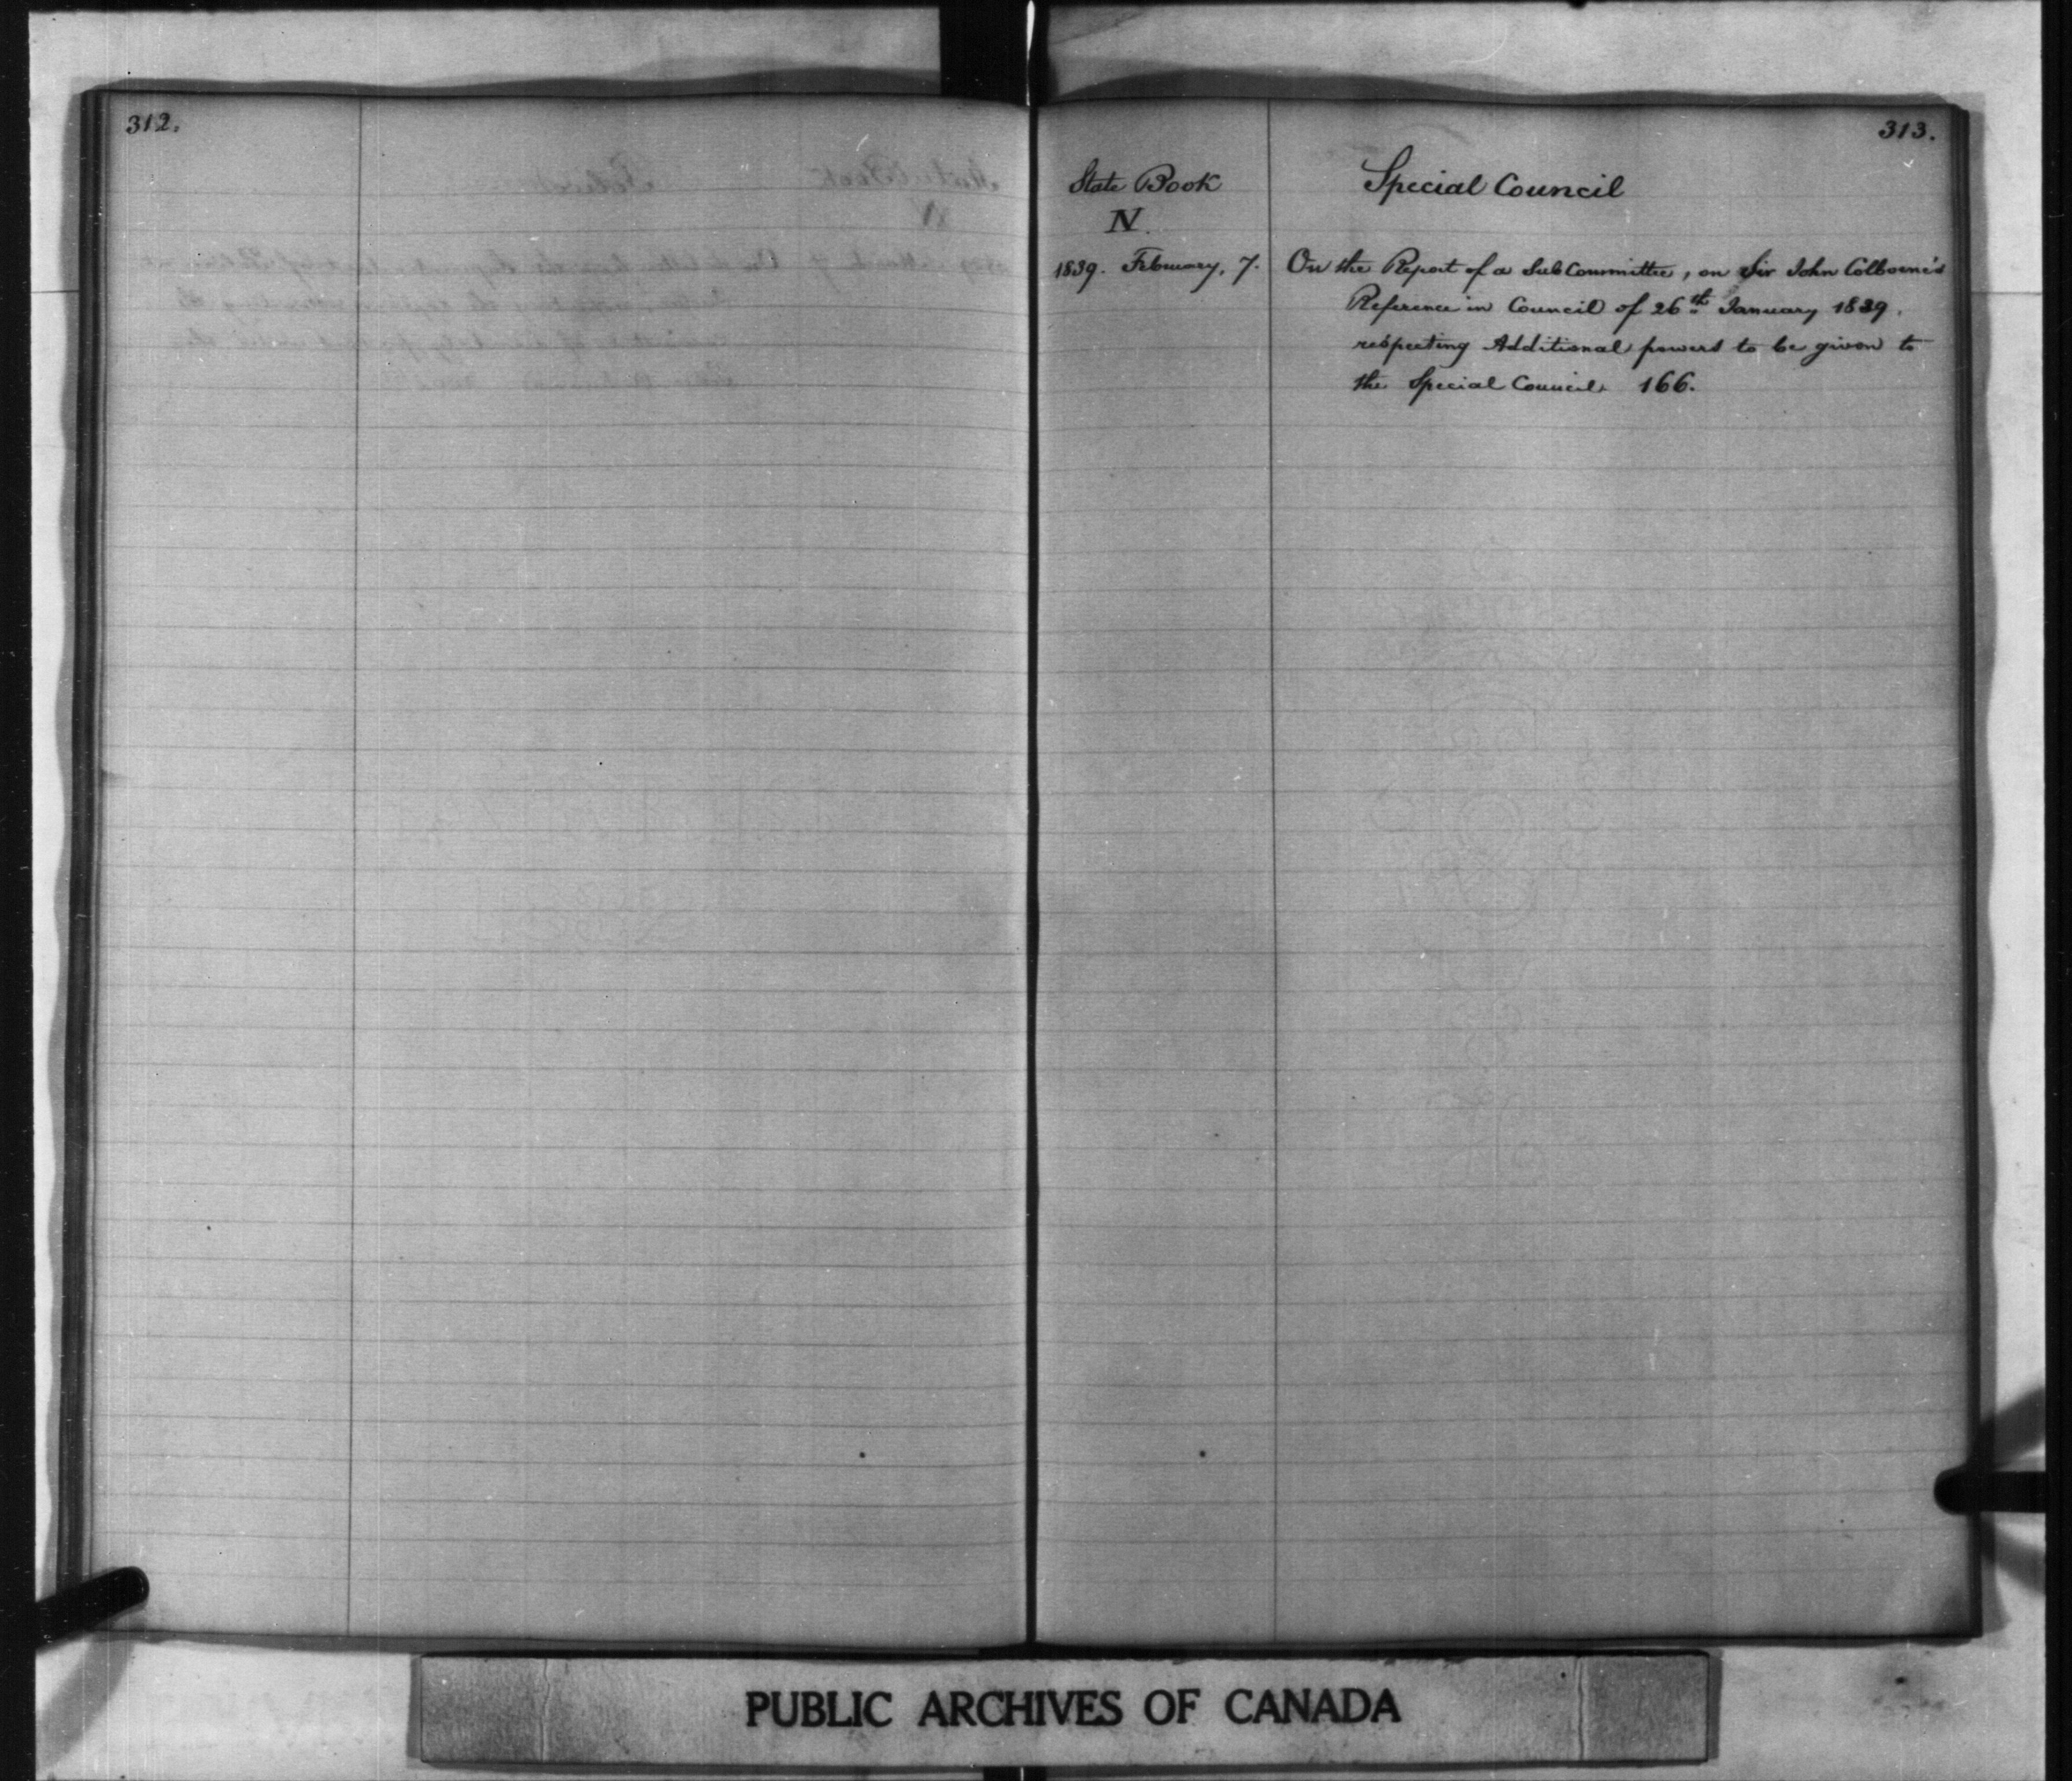 312.
313.
State Book
N.
Special Council
1839. February, 7. On the Report of a Sub Committee, on Sir John Colborne's
Reference in Council of 26th January 1839,
respecting Additional powers to be given to
the Special Council. 166.
PUBLIC ARCHIVES OF CANADA